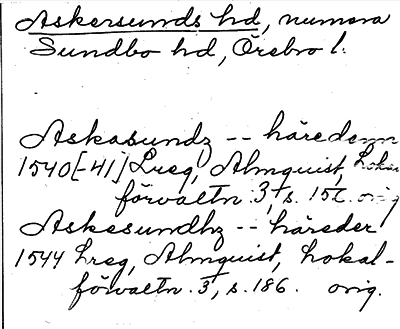 Askersunds hd, numera
Sundbo hd, Örebro l.
Askasundz -- häredenn
1540[-41] Lreg, Almquist, Lokal
förvaltn. 3, s. 152. orig
Askesundhz -- häreder
1544 Lreg, Almquist, Lokal-
förvaltn. 3, s. 186. orig.